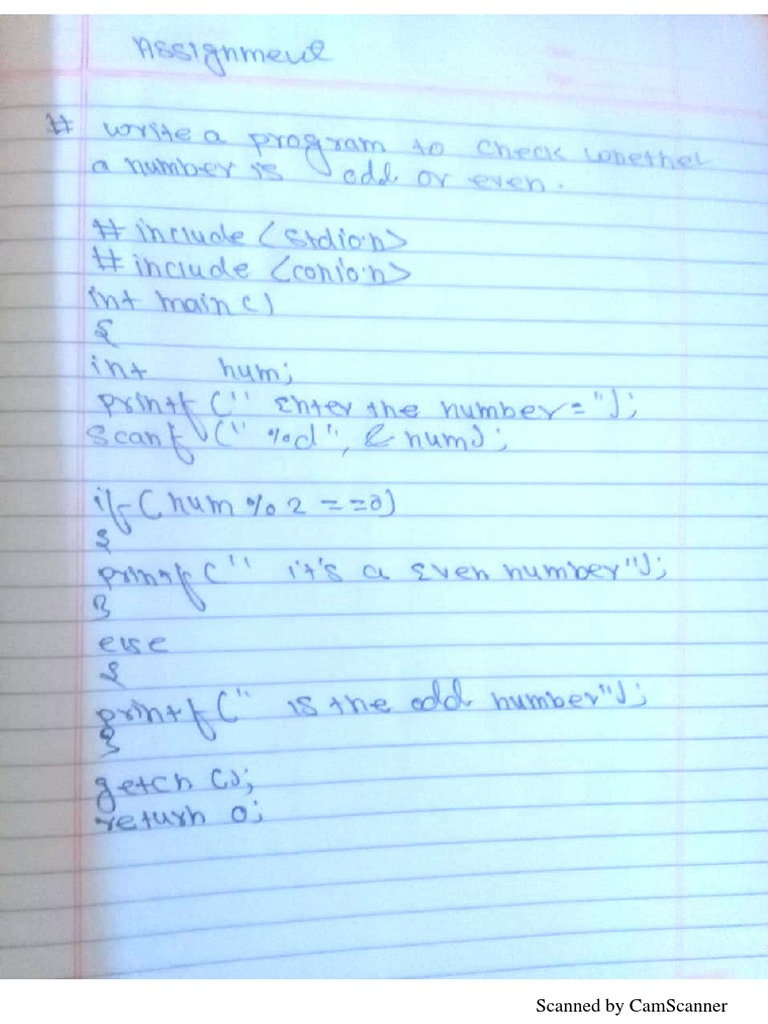 Assignment
# write a program to check whether
a number is odd or even.
# include <stdio.h>
# include <conio.h>
int main ()
{
int num;
printf (" Enter the number=");
Scanf (" %d", & num);
if ( num % 2 ==0)
{
printf (" it's a Even number");
}
else
{
printf (" is the odd number");
}
getch ();
return 0;
Scanned by CamScanner